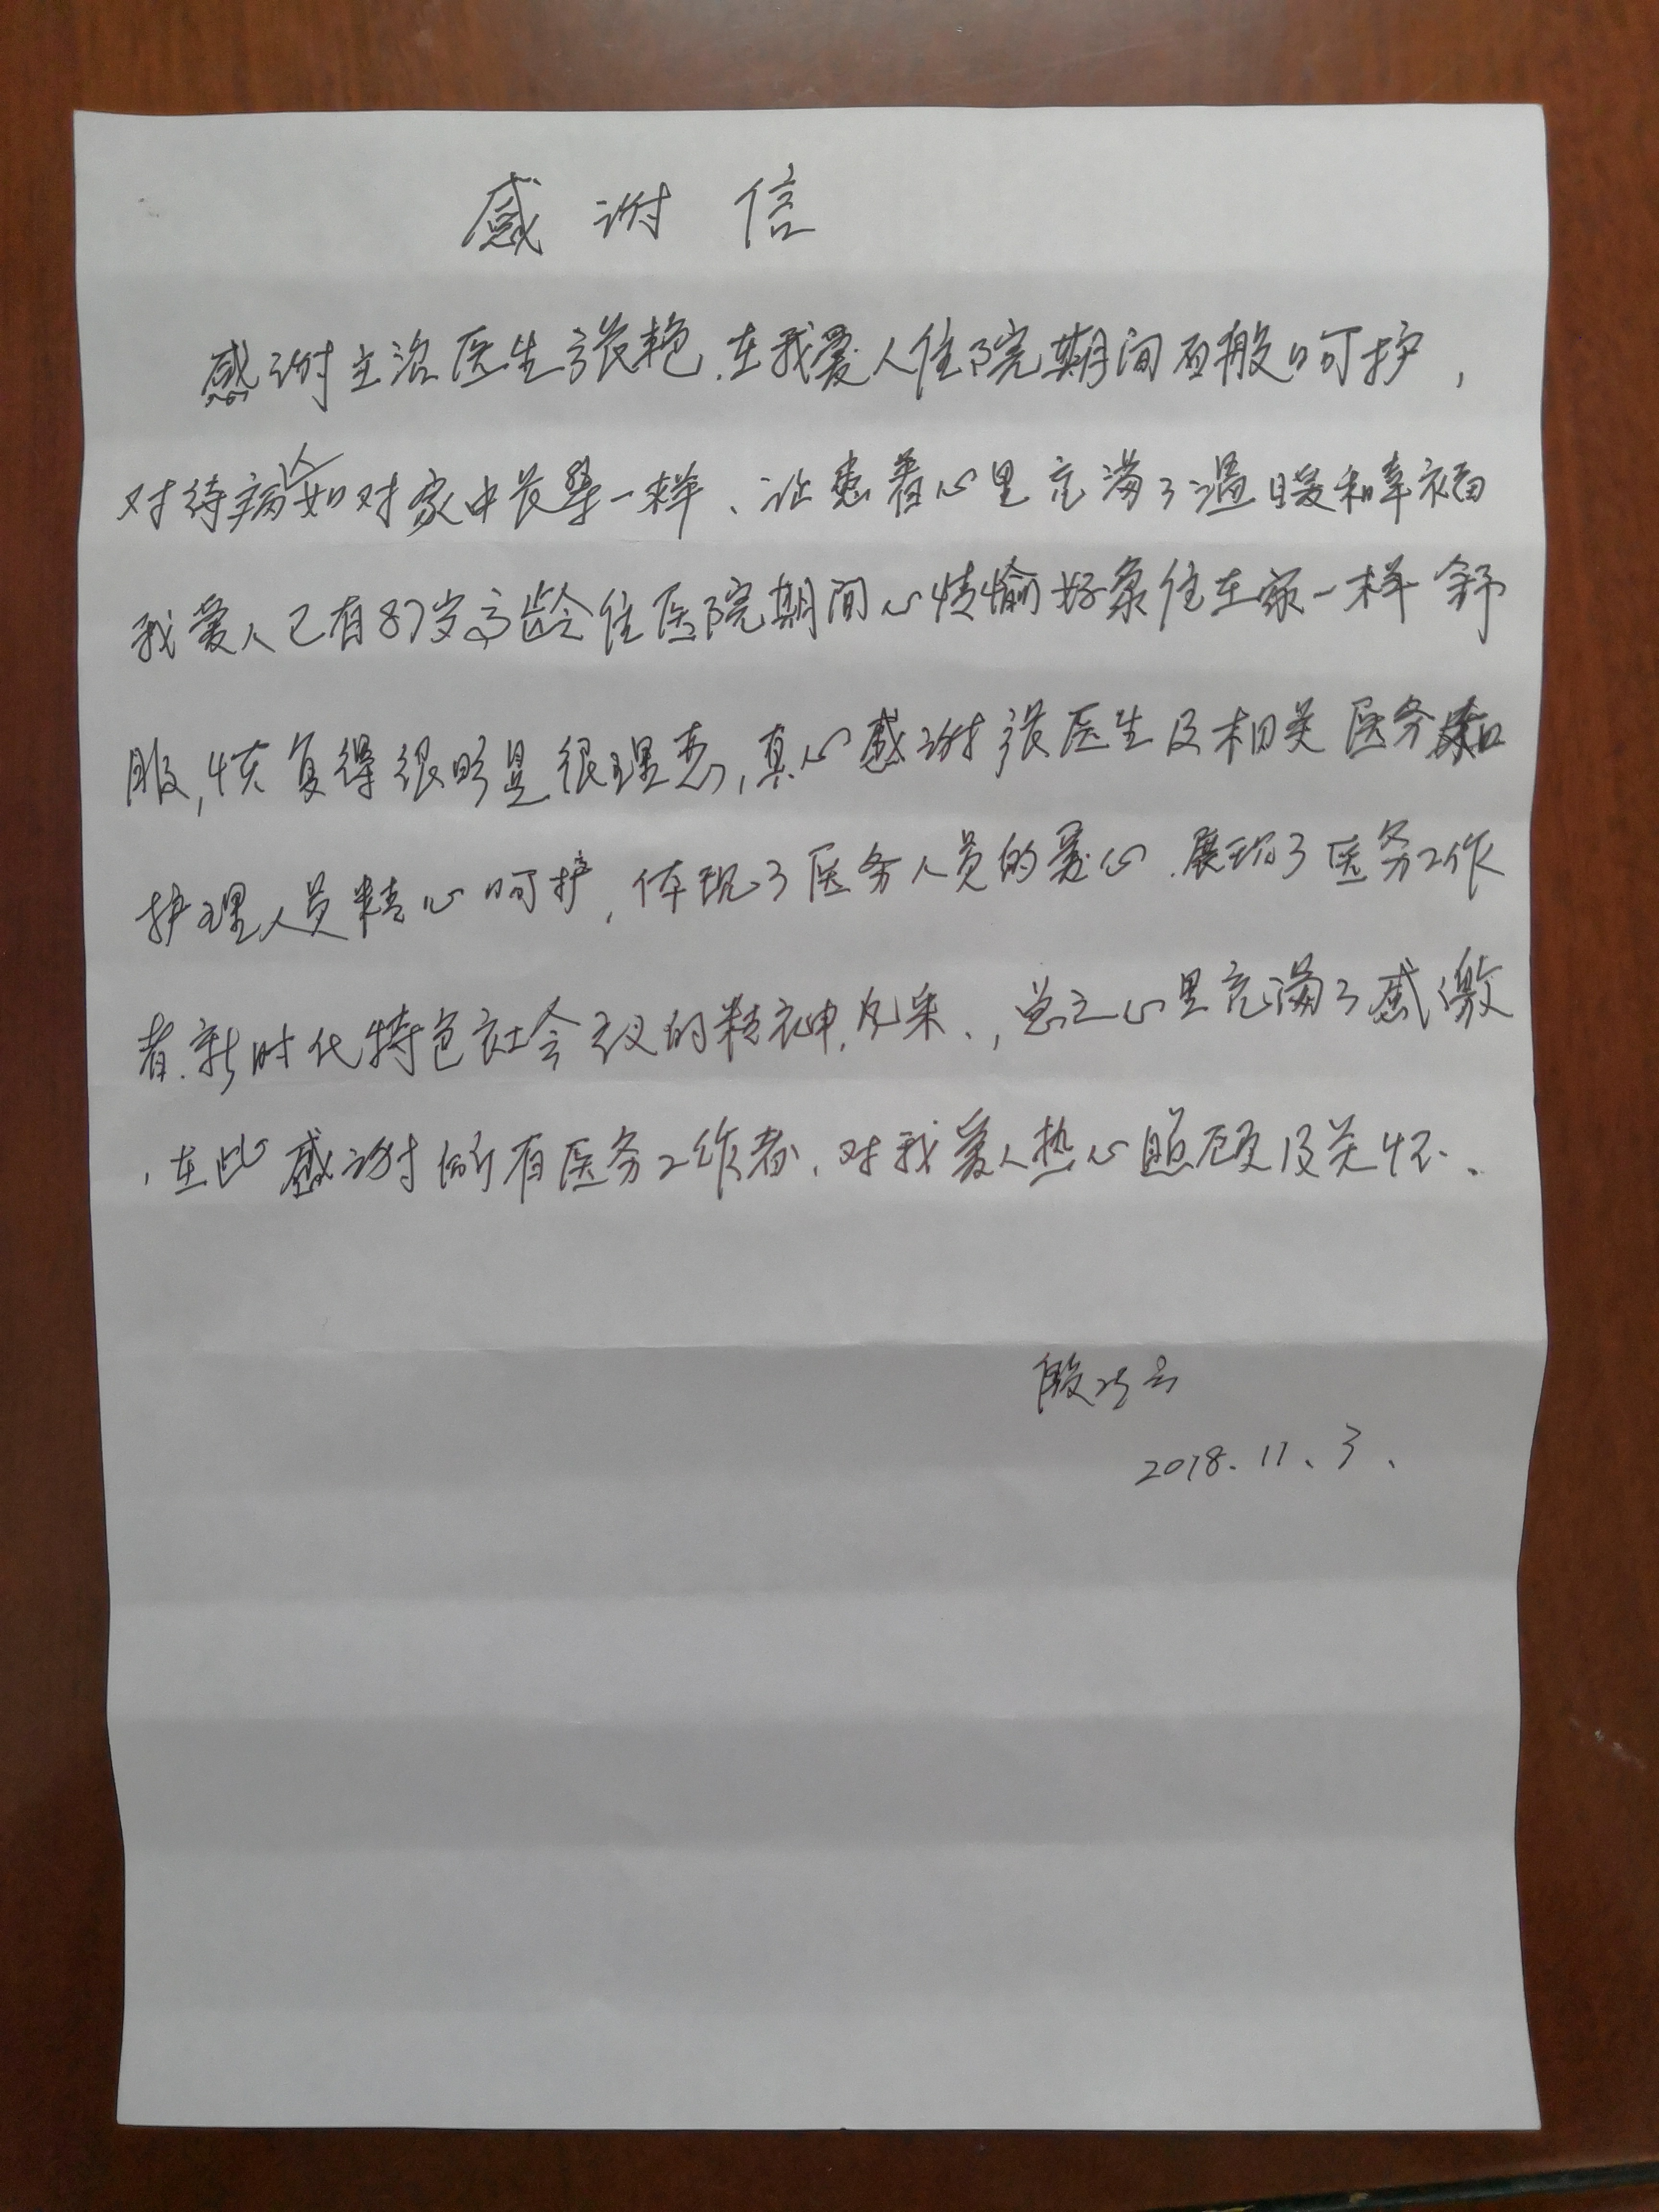 感谢信
感谢主治医生张艳.在我爱人住院期间百般呵护,
对待病人如对家中长辈一样、让患者心里充满了温暖和幸福
我爱人已有87岁高龄住医院期间心情愉好象住在家一样舒
服,恢复得很明显很理想,真心感谢张医生及相关医务和
护理人员精心呵护,体现了医务人员的爱心.展现了医务工作
者.新时代特色社会主义的精神.风采、,总之心里充满了感激
、在此感谢所有医务工作者、对我爱人热心照顾及关怀、
殷云
2018.11、3、